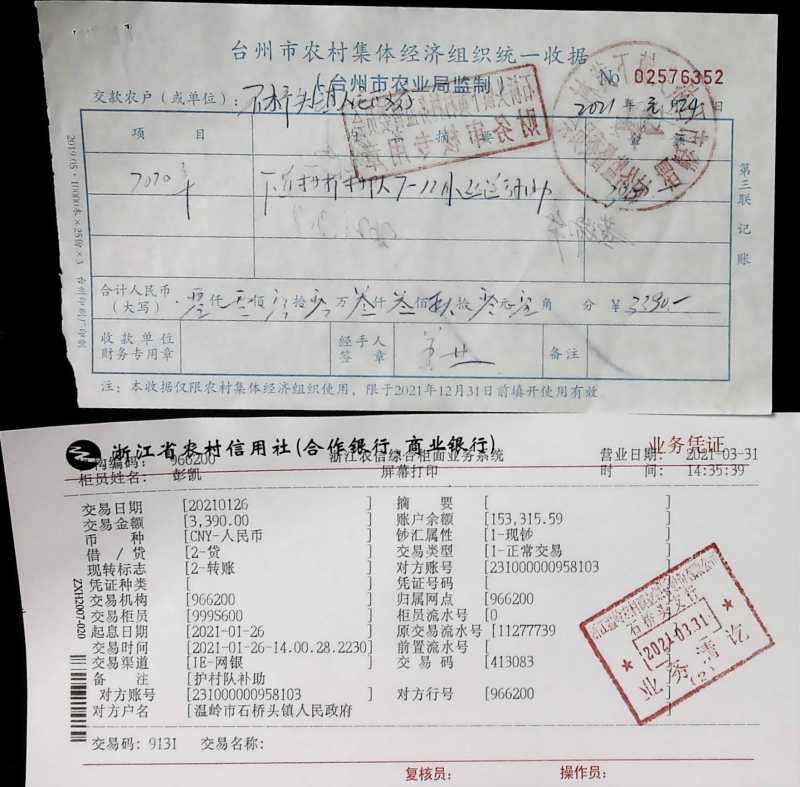 台州市农村集体经济组织统一收据
(台州市农业局监制)
No 02576352
交款农户（或单位）：石桥头镇人民政府
2021年 元 月29日
项 目
摘 要
2020年
第三联 记账
2019.05·10000本×25份×3 台州印刷厂印制
财务审核专用章
合计人民币
(大写)
零仟零佰零拾零万叁仟叁佰玖拾零元零角 分 ￥3390.-
收款单位
财务专用章
经手人
签 章
备注
注：本收据仅限农村集体经济组织使用，限于2021年12月31日前填开使用有效
浙江省农村信用社(合作银行, 商业银行)
业务凭证
机构编码： 966200
浙江农信综合柜面业务系统
营业日期：2021-03-31
柜员姓名： 彭凯
屏幕打印
时 间： 14:35:39
交易日期 [20210126 ] 摘 要 [ ]
交易金额 [3,390.00 ] 账户余额 [153,315.59 ]
币 种 [CNY-人民币 ] 钞汇属性 [1-现钞 ]
借 / 贷 [2-贷 ] 交易类型 [1-正常交易 ]
现转标志 [2-转账 ] 对方账号 [231000000958103 ]
凭证种类 [ ] 凭证号码 [ ]
交易机构 [966200 ] 归属网点 [966200 ]
交易柜员 [999S600 ] 柜员流水号 [0 ]
起息日期 [2021-01-26 ] 原交易流水号 [11277739 ]
交易时间 [2021-01-26-14.00.28.2230] 前置流水号 [ ]
交易渠道 [IE-网银 ] 交 易 码 [413083 ]
备 注 [护村队补助 ]
对方账号 [231000000958103 ] 对方行号 [966200 ]
对方户名 [温岭市石桥头镇人民政府 ]
交易码：913I 交易名称：
ZXH2007-020
石桥头支行
2021.03.31
业务清讫
(2)
复核员： 操作员：